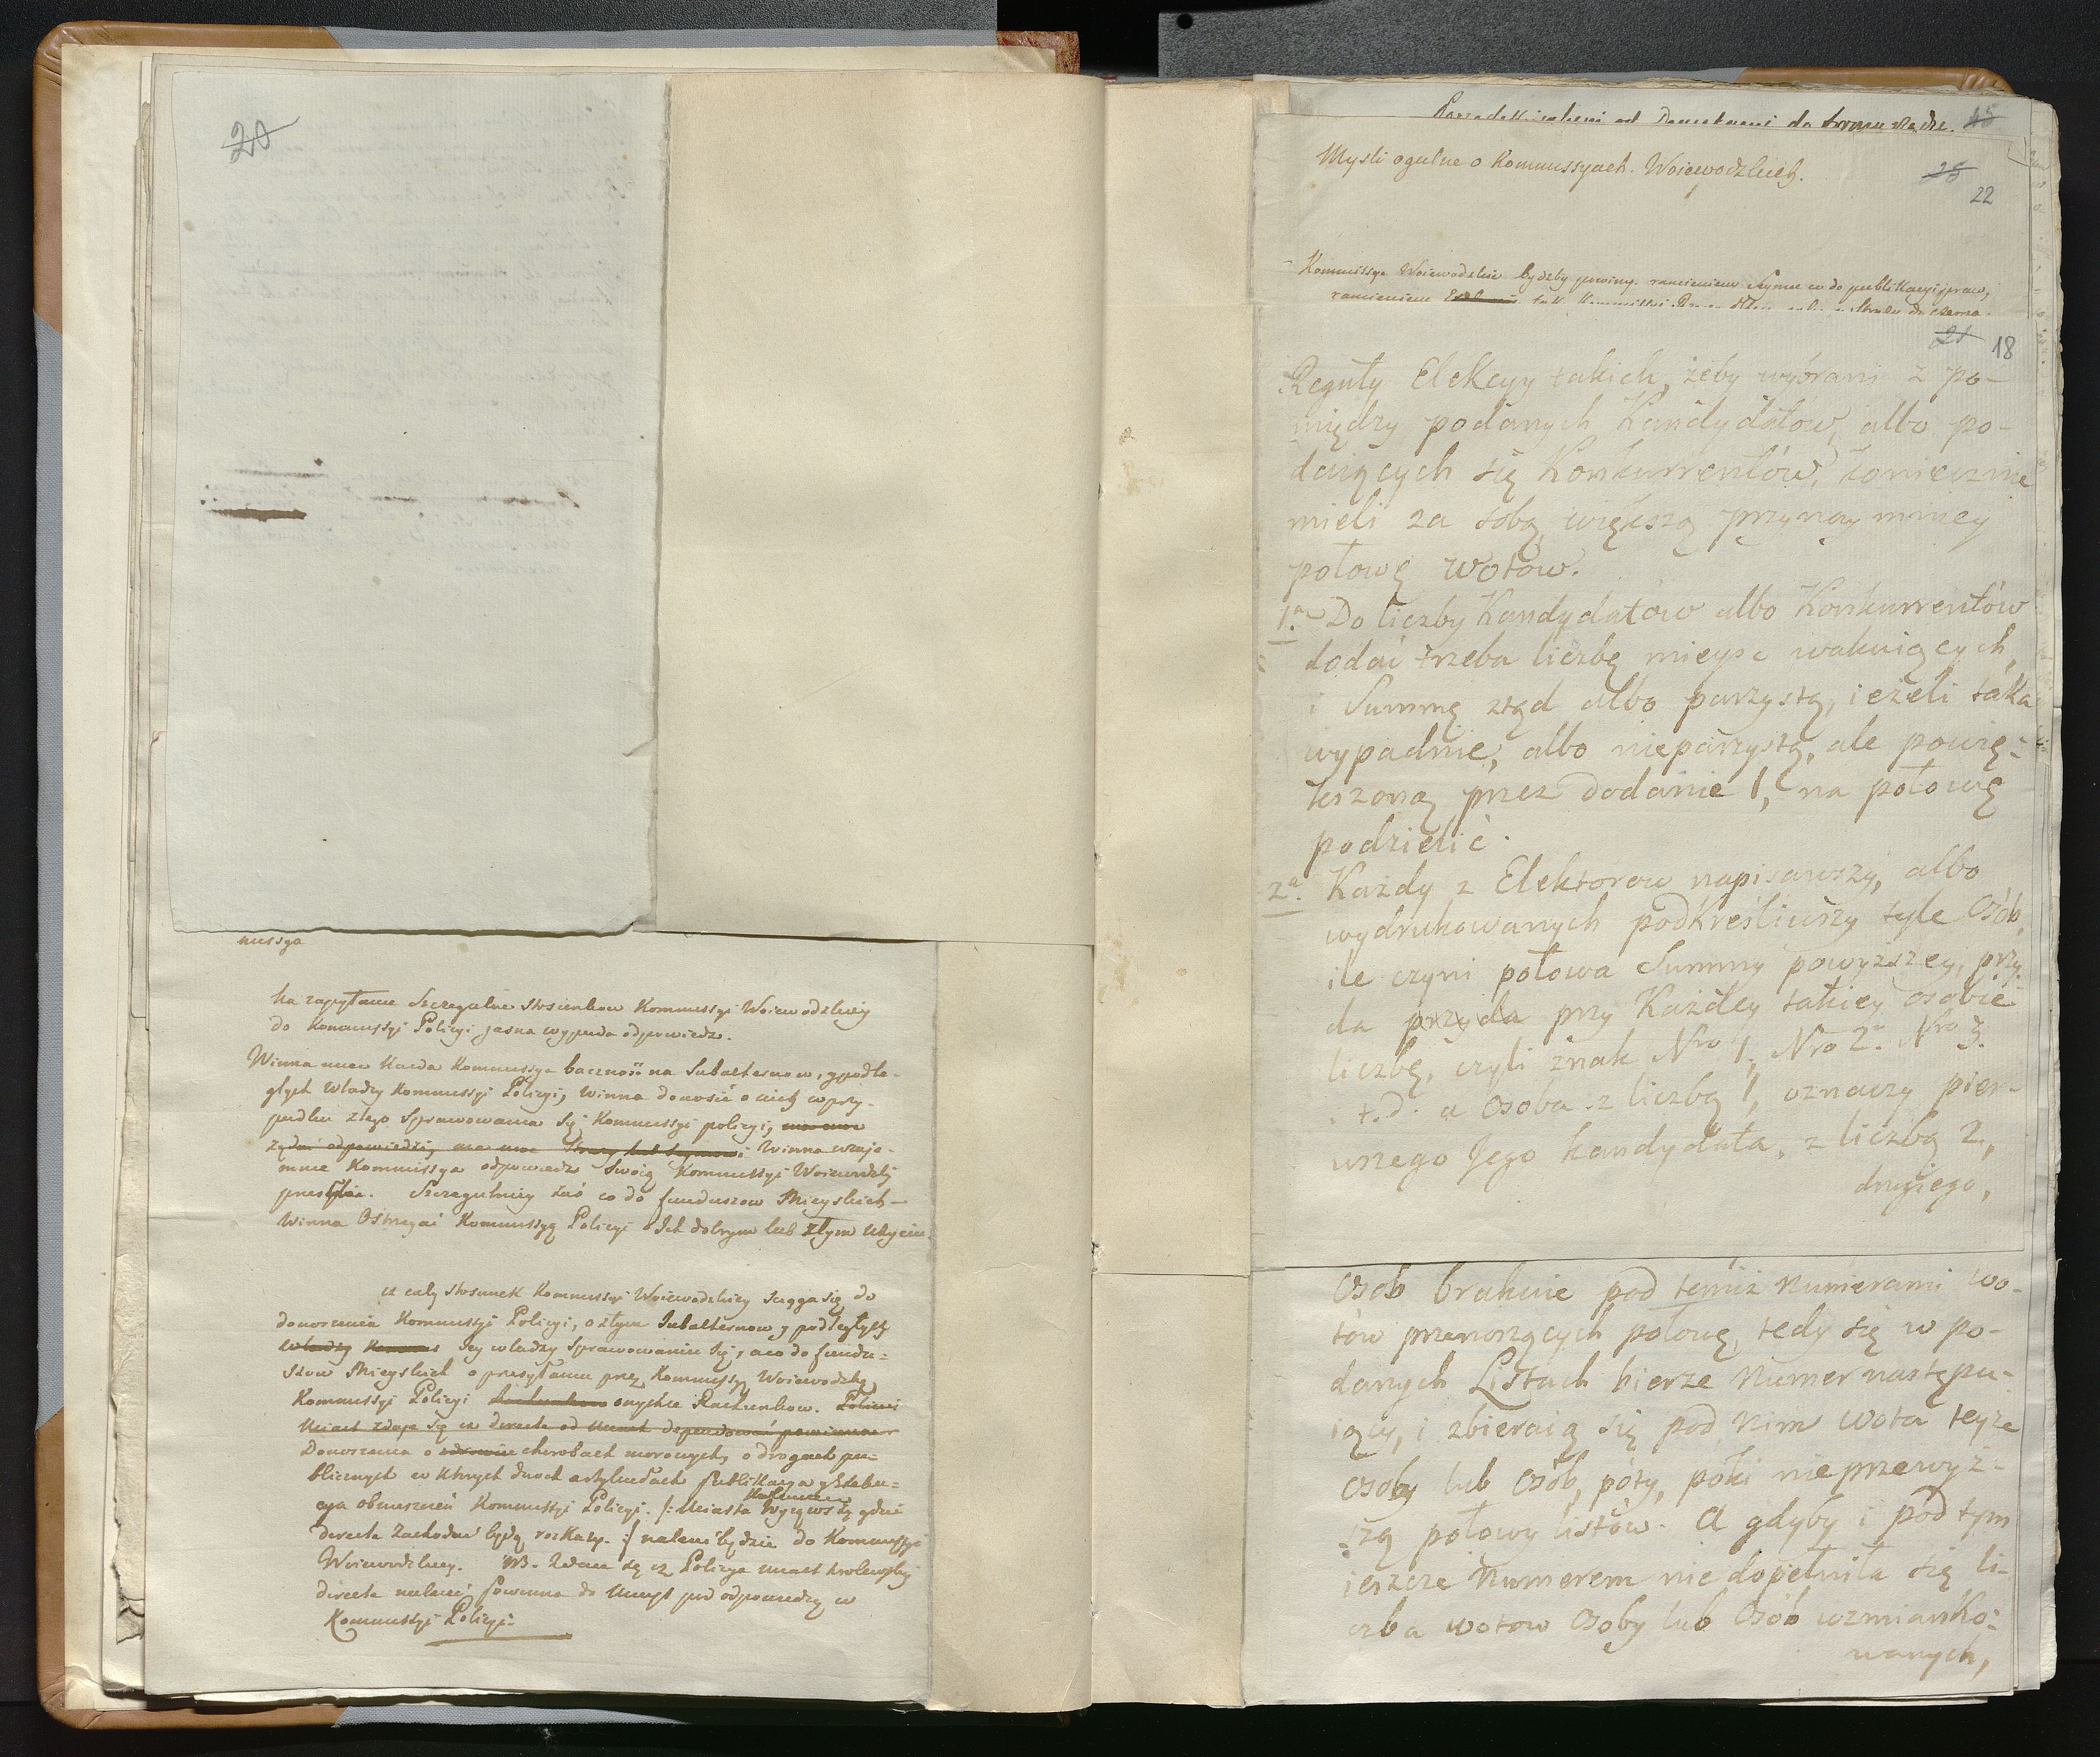 20
missya
Na zapytanie Szczegulne Stosienkow Kommissyi Woiewodzkiey
do Kommissyi Policyi jasna wypada odpowiedz.
Winna miec Kazda Kommissya bacznosć na Subalternow, y podle-
głych władzy Kommissyi Policyi, winna donosić o nich w przy-
padku złego Sprawowania Się Kommissyi policyi,
żądać odpowiedzi, winna wzaje-
mnie Kommissya odpowiedz Swoią Kommissyi Woiewodzkiy
przesyłać. Szczegulniey zaś co do funduszow Mieyskich
Winna Ostrzegać Kommissyą Policyi o Ich dobrym lub złym użyciu.
cały Stosunek Kommissyi Woiewodzkiey sciąga się do
donoszenia Kommissyi Policyi, o złym Subalternow y podległych
władzy Iey władzy Sprawowaniu Się, a co do fundu=
szow Mieyskich o przesyłaniu przez Kommissyą Woiewodzką
Kommissyi Policyi onychże Rachunkow. Policyi
Miast zdaje się iz directe od Miast dependować powinna
Donoszenia o chorobach morowych, o drogach pu=
blicznych w ktrych dwoch artykułach publikacya y Exeku=
cya obwieszczeń Kommissyi Policyi. /: Miasta Wyiąwszy gdzie
directe Zachodzić będą rozkazy. :/ należeć będzie do Kommissyi
Woiewodzkiey. NB. Zdaie się iz Policya miast krolewskich
directe należeć powinna do Miast pod odpowiedzą w
Kommissyi Policyi.
45
Mysli ogulne o Kommissyach. Woiewodzkich.
25
22
Kommissye Woiewodzkie bydzby powinny ramieniem Seymu co do publikacyi praw,
ramieniem
21 18
Reguły Elekcyy takich, żeby wybrani z po-
między podanych Kandydatow, albo po-
daiących się Konkurrentów, koniecznie
mieli za sobą większą przynaymniey
połowę wotow.
1.a Do liczby Kandydatow albo Konkurrentów
dodać trzeba liczbę mieysc wakuiących,
i Summę ztąd albo parzystą, ieżeli taka
wypadnie, albo nieparzystą, ale powię-
kszoną przez dodanie 1, na połowę
podzielić.
2.a Każdy z Elektorow napisawszy, albo
wydrukowanych podkreśliwszy tyle Osób,
ile czyni połowa Summy powyższey, przy-
da przyda przy Każdey takiey osobie
liczbę, czyli znak Nro 1. Nro 2. Nro 3.
i t.d. a Osoba z liczbą 1, oznaczy pier-
wszego Jego kandydata, z liczbą 2,
drugiego,
Osob brakuie pod temiż Numerami wo-
tow przenoszących połowę, tedy się w po-
danych Listach bierze Numer następu-
iący, i zbieraią się pod Nim wota teyże
Osoby lub Osób, póty, póki nie przewyż-
szą połowy listów. A gdyby i pod tym
ieszcze Numerem nie dopełniła się li-
czba wotow Osoby lub Osób wzmianko-
wanych,